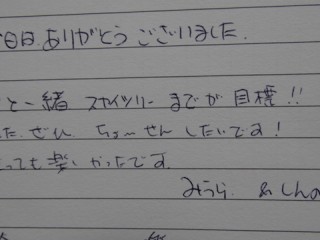 今日は、ありがとうございました。
と一緒 スカイツリーまでが目標!!
た、ぜひ ちょーせんしたいです!
っても楽しかったです。
みうら。 &しんの